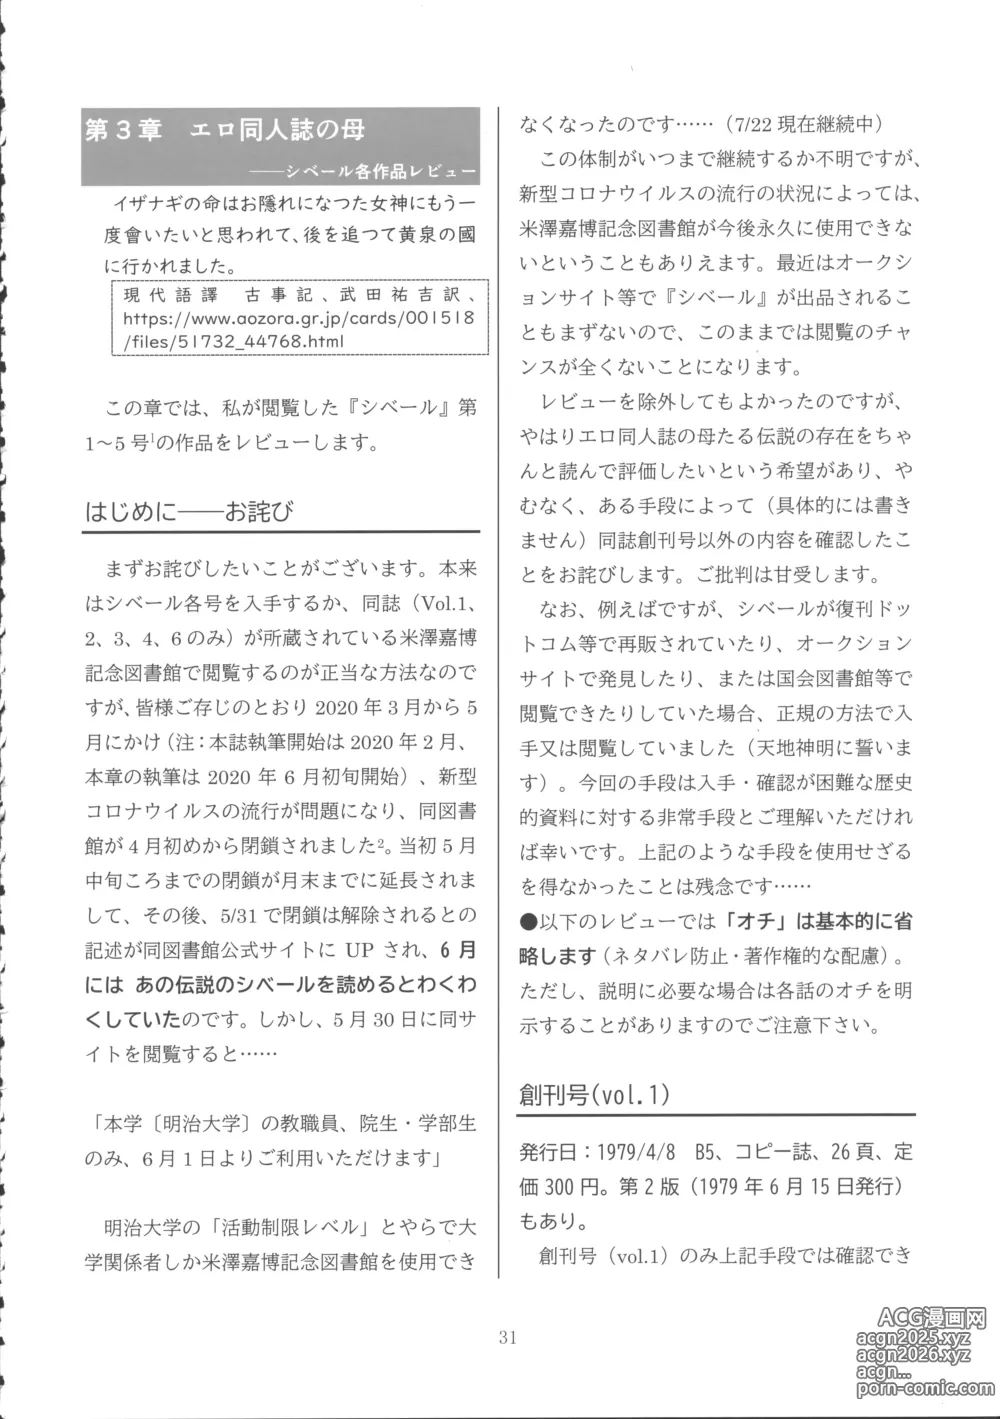 第3章　エロ同人誌の母
――シベール各作品レビュー
イザナギの命はお隱れになつた女神にもう一
度會いたいと思われて、後を追つて黄泉の國
に行かれました。
現代語譯　古事記、武田祐吉訳、
https://www.aozora.gr.jp/cards/001518
/files/51732_44768.html
この章では、私が閲覧した『シベール』第
1～5号1の作品をレビューします。
はじめに――お詫び
まずお詫びしたいことがございます。本来
はシベール各号を入手するか、同誌（Vol.1、
2、3、4、6のみ）が所蔵されている米澤嘉博
記念図書館で閲覧するのが正当な方法なので
すが、皆様ご存じのとおり2020年3月から5
月にかけ（注：本誌執筆開始は2020年2月、
本章の執筆は2020年6月初旬開始）、新型
コロナウイルスの流行が問題になり、同図書
館が4月初めから閉鎖されました2。当初5月
中旬ころまでの閉鎖が月末までに延長されま
して、その後、5/31で閉鎖は解除されるとの
記述が同図書館公式サイトにUPされ、6月
には あの伝説のシベールを読めるとわくわ
くしていたのです。しかし、5月30日に同サ
イトを閲覧すると……
「本学〔明治大学〕の教職員、院生・学部生
のみ、6月1日よりご利用いただけます」
明治大学の「活動制限レベル」とやらで大
学関係者しか米澤嘉博記念図書館を使用でき
なくなったのです……（7/22現在継続中）
この体制がいつまで継続するか不明ですが、
新型コロナウイルスの流行の状況によっては、
米澤嘉博記念図書館が今後永久に使用できな
いということもありえます。最近はオークシ
ョンサイト等で『シベール』が出品されるこ
ともまずないので、このままでは閲覧のチャ
ンスが全くないことになります。
レビューを除外してもよかったのですが、
やはりエロ同人誌の母たる伝説の存在をちゃ
んと読んで評価したいという希望があり、や
むなく、ある手段によって（具体的には書き
ません）同誌創刊号以外の内容を確認したこ
とをお詫びします。ご批判は甘受します。
なお、例えばですが、シベールが復刊ドッ
トコム等で再販されていたり、オークション
サイトで発見したり、または国会図書館等で
閲覧できたりしていた場合、正規の方法で入
手又は閲覧していました（天地神明に誓いま
す）。今回の手段は入手・確認が困難な歴史
的資料に対する非常手段とご理解いただけれ
ば幸いです。上記のような手段を使用せざる
を得なかったことは残念です……
●以下のレビューでは「オチ」は基本的に省
略します（ネタバレ防止・著作権的な配慮）。
ただし、説明に必要な場合は各話のオチを明
示することがありますのでご注意下さい。
創刊号(vol.1)
発行日：1979/4/8　B5、コピー誌、26頁、定
価300円。第2版（1979年6月15日発行）
もあり。
創刊号（vol.1）のみ上記手段では確認でき
31
ACG漫画网
acgn2025.xyz
acgn2026.xyz
acgn...
porn-comic.com